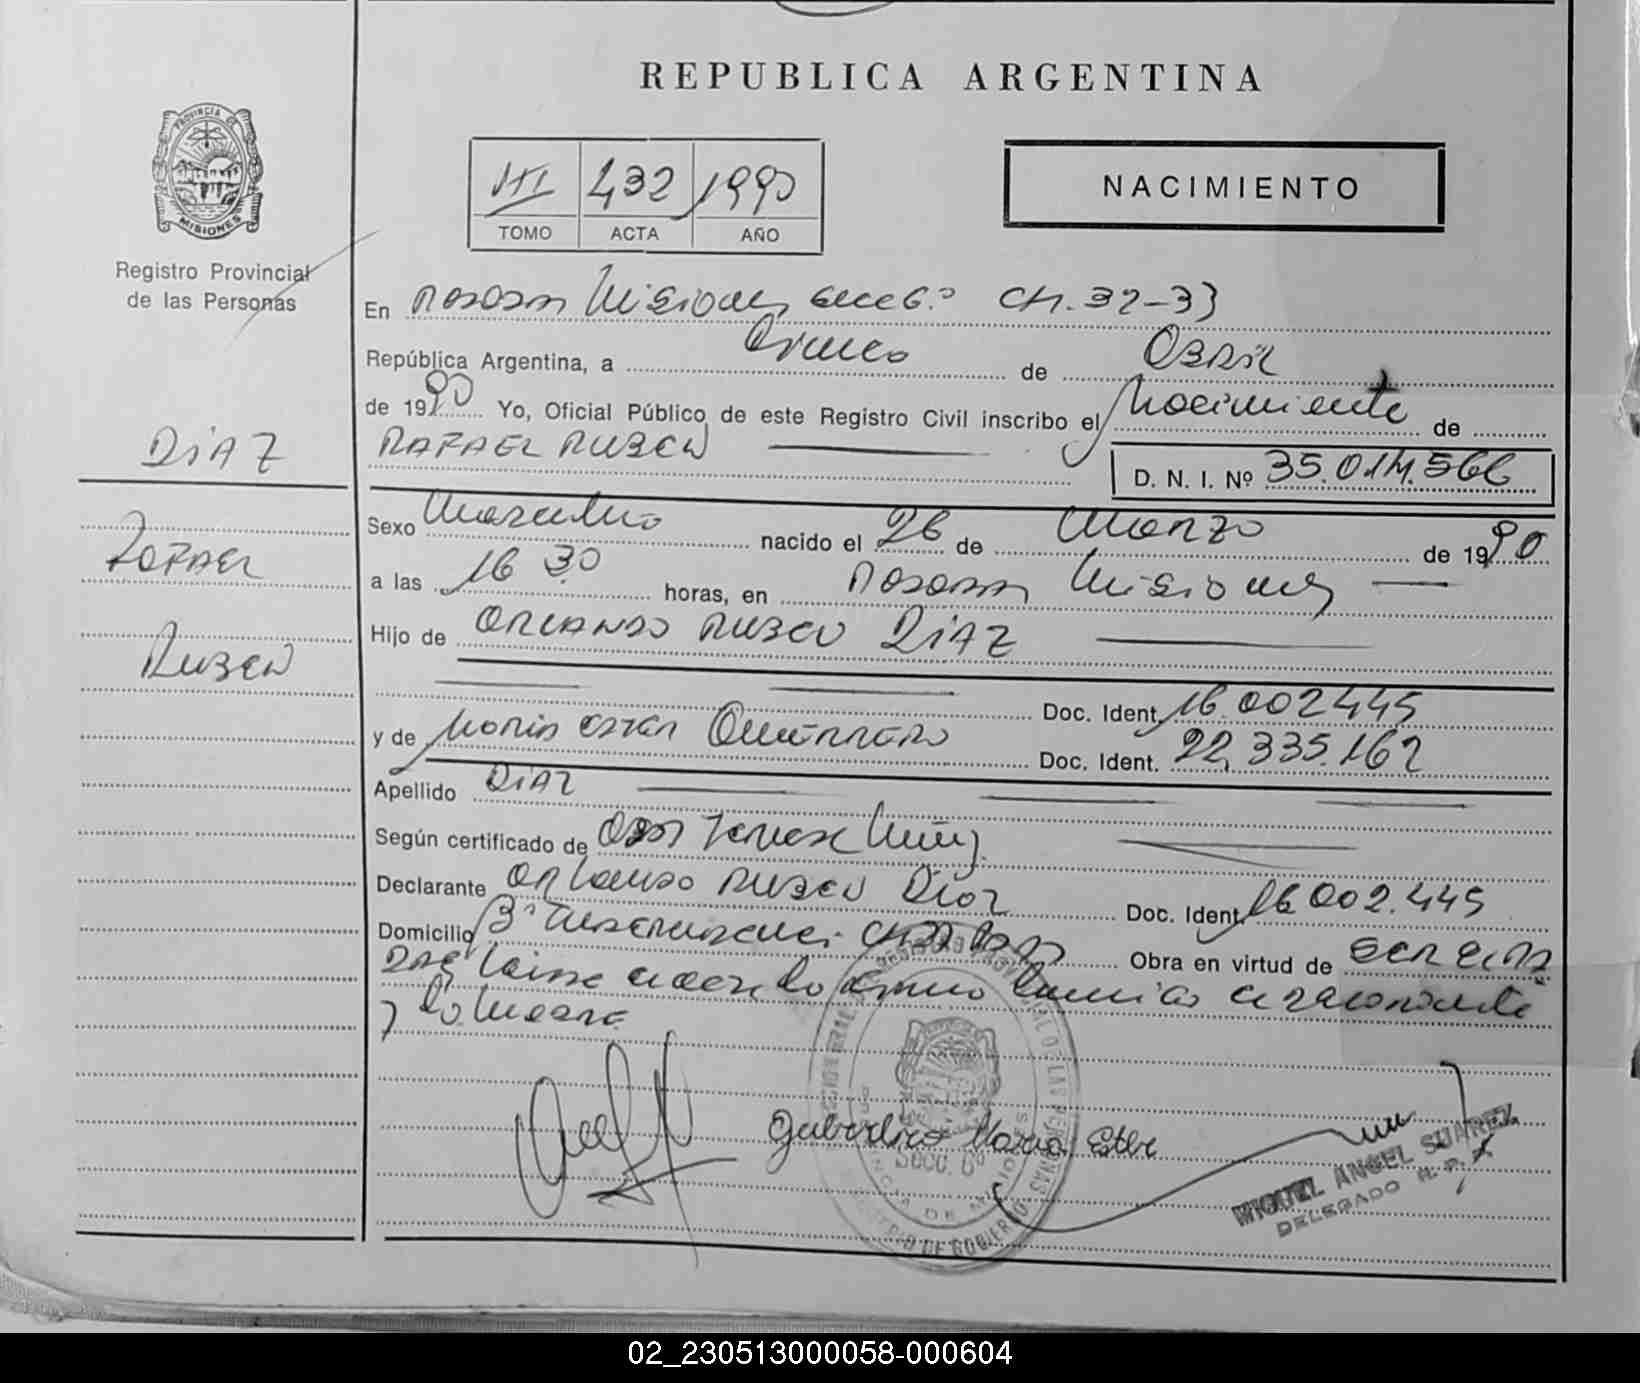 REPUBLICA ARGENTINA
PROVINCIA DE
MISIONES
Registro Provincial
de las Personas
III 432 1990
TOMO ACTA AÑO
NACIMIENTO
En Posadas Misiones Secc 6ª CH. 32-33
República Argentina, a Cinco de Abril
de 1990 Yo, Oficial Público de este Registro Civil inscribo el Nacimiento de
RAFAEL RUBEN
D. N. I. Nº 35.014.566
DIAZ
RAFAEL
RUBEN
Sexo Masculino nacido el 26 de Marzo de 1990
a las 16 30 horas, en Posadas Misiones
Hijo de ORLANDO RUBEN DIAZ
Doc. Ident. 16.002445
y de Maria Ester GUERRERO Doc. Ident. 22.335.162
Apellido DIAZ
Según certificado de
Declarante Orlando RUBEN Diaz Doc. Ident. 16.002.445
Domicilio Obra en virtud de ser el
y la madre
Guerrero Maria Ester
Secc. 6ª
MIGUEL ANGEL SUAREZ
DELEGADO R. P.
02_230513000058-000604